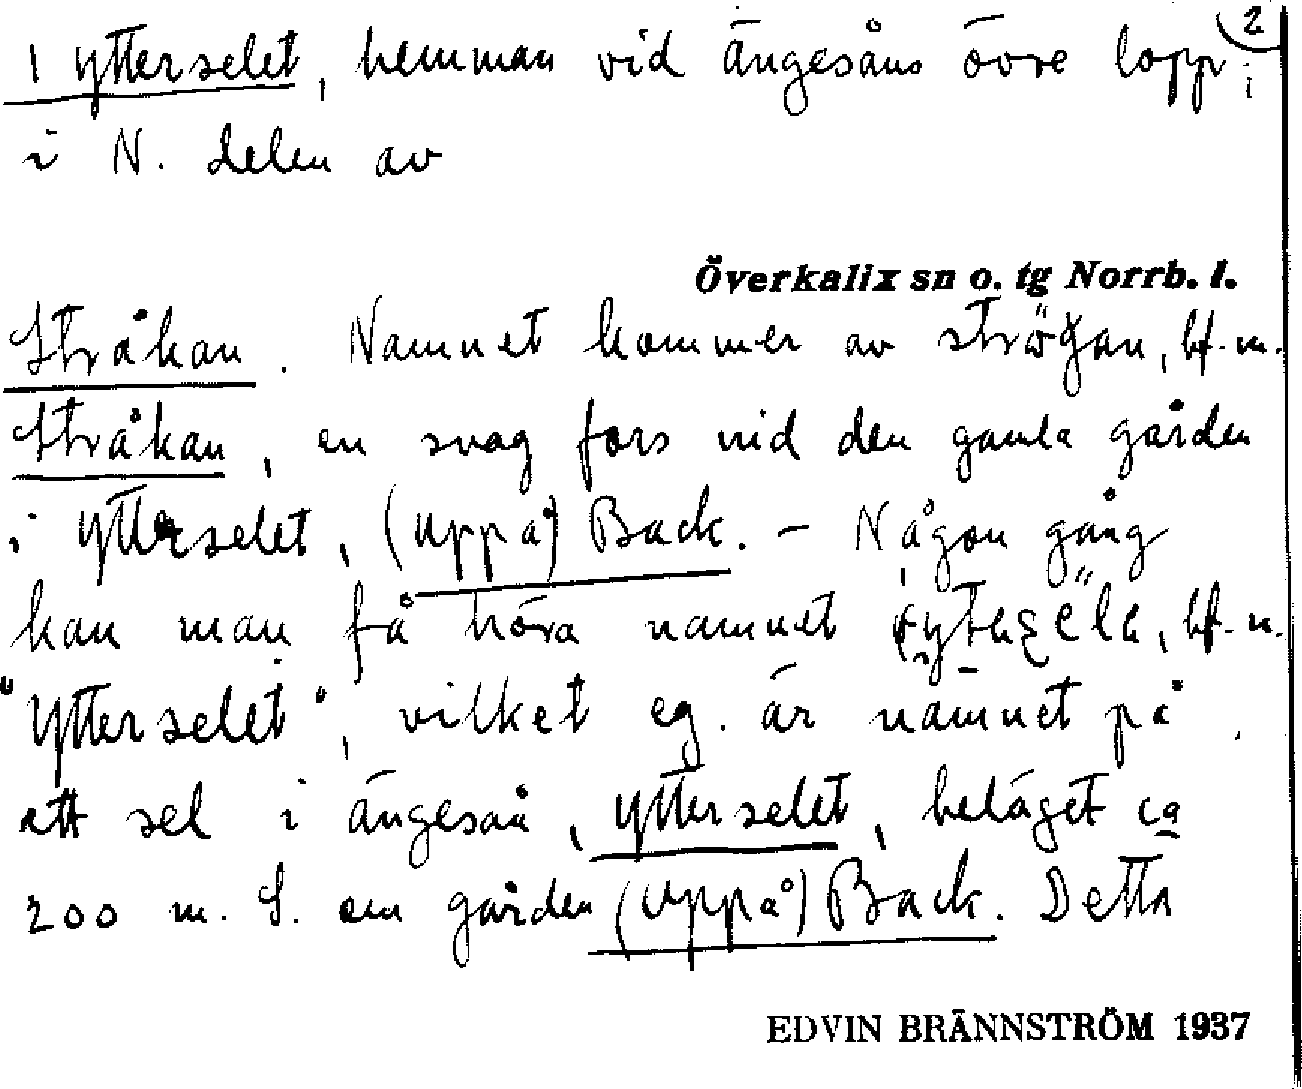 2
1 Ytterselet, hemman vid Ängesåns övre lopp i
i N. delen av
Överkalix sn o. tg Norrb. l.
Stråkan. Namnet kommer av bf. m.
Stråkan, en svag fors vid den gamla gården
i Ytterselet, (Uppå) Back. – Någon gång
kan man få höra namnet bf. n.
"Ytterselet", vilket eg. är namnet på
ett sel i Ängesån, Ytterselet, beläget ca
200 m. S. om gården (Uppå) Back. Detta
EDVIN BRÄNNSTRÖM 1937